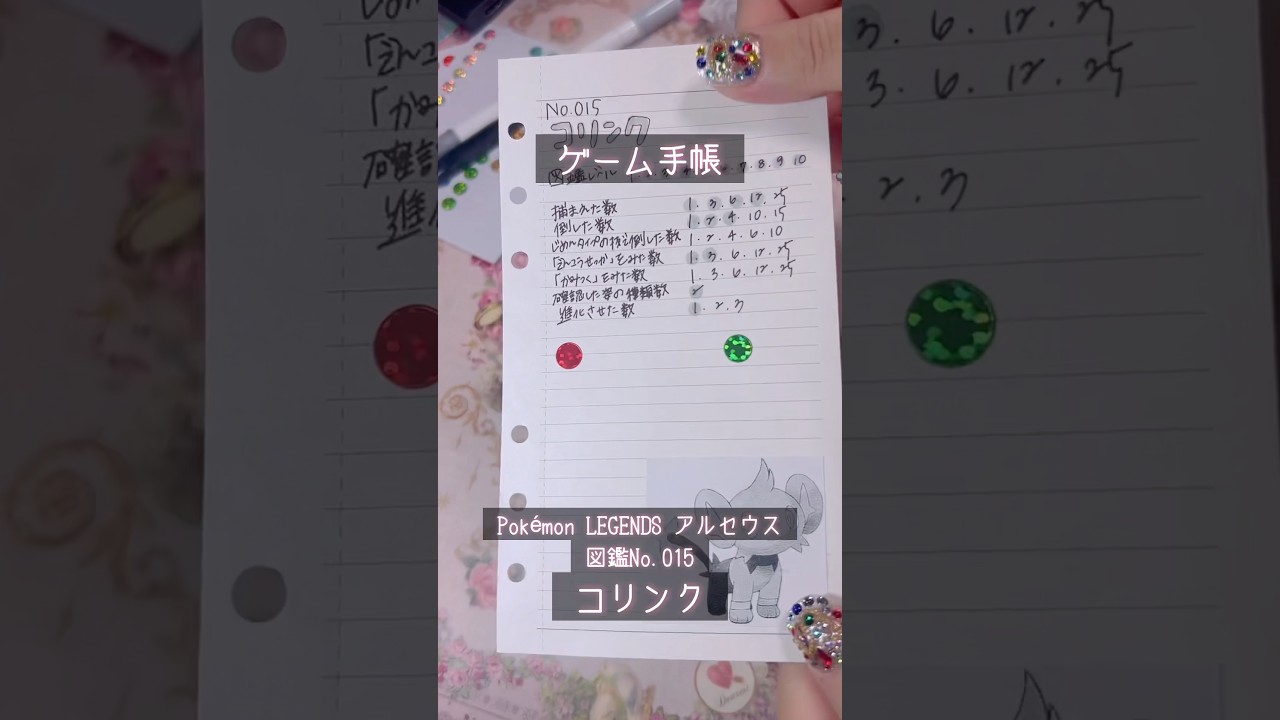 No.015
コリンク
ゲーム手帳
図鑑レベル 7.8.9 10
捕まえた数 1.3.6.12.25
倒した数 1.2.4.10.15
じめんタイプの技で倒した数 1.2.4.6.10
「でんこうせっか」をみた数 1.3.6.12.25
「かみつく」をみた数 1.3.6.12.25
確認した姿の種類数 2
進化させた数 1.2.3
Pokémon LEGENDS アルセウス
図鑑No.015
コリンク
3.6.12.25
3.6.12.25
2.3